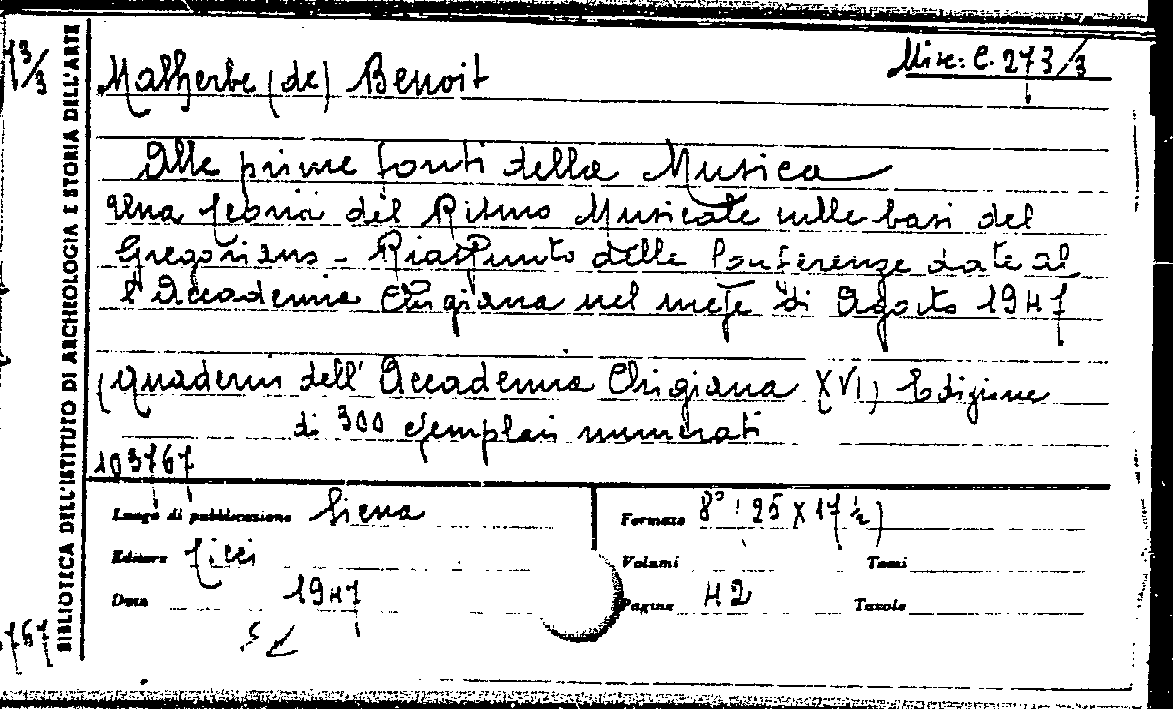 Misc. C. 273/3
Malherbe (de) Benoit
Alle prime fonti della Musica
Una teoria del Ritmo Musicale sulle basi del
Gregoriano - Riassunto delle Conferenze date al
l'Accademia Chigiana nel mese di Agosto 1947
(Quaderni dell'Accademia Chigiana XVI) Edizione
di 300 esemplari numerati
103767
Luogo di pubblicazione Siena
Editore Ticci
Data 1947
Formato 8° (25 X 17 ½)
Volumi Tomi
Pagine 42 Tavole
BIBLIOTECA DELL'ISTITUTO DI ARCHEOLOGIA E STORIA DELL'ARTE